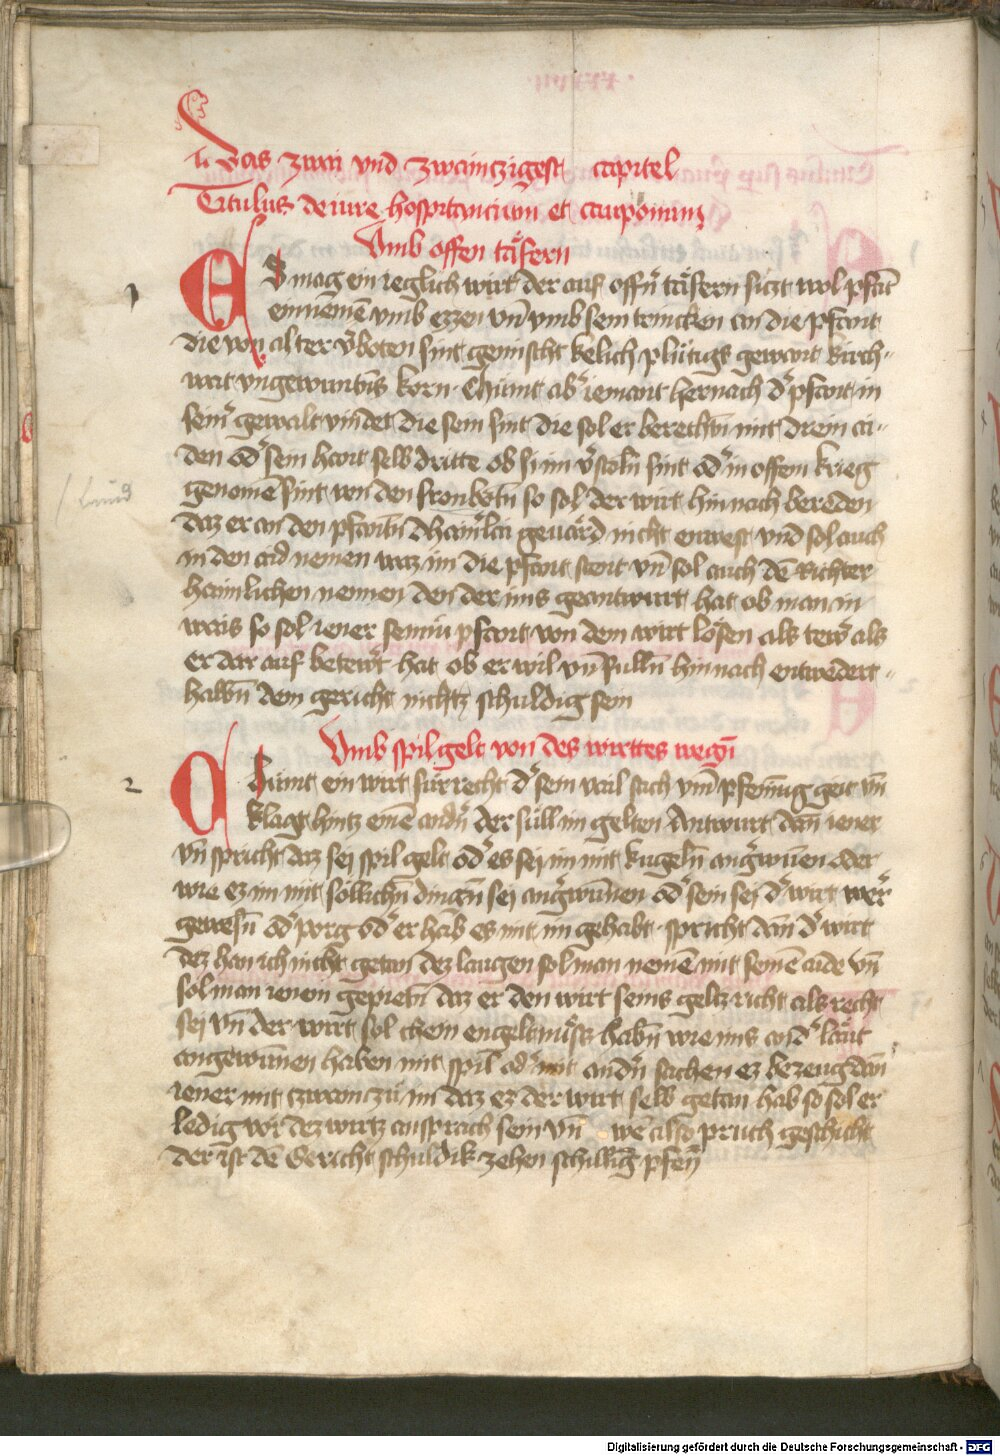 Das zwai vnd zwainczigest capitel
Titulus de iure hospitancium et cauponum
Vmb offen täfern
1 Es mag ein ieglich wirt der auf offn̄ täfern siczt wol pfāt
einnemē vmb ezzen vn̄ vmb sein trincken an die pfant
die von alter v̓boten sint gemischt kelich plütigs gewant kirch-
wat vngewuntn̄s korn · Chümt ab̓ iemant hernach d̓ pfant in
sein̓ gewalt vindet die sein sint die sol er berechtn̄ mit drein ai-
den od̓ sein hant selb dritte ob si im v̓stoln̄ sint od̓ in offem krieg
genomē sint von den fronbotn̄ so sol der wirt hin nach bereden
daz er an den pfantn̄ dhain̓lai geuärd nicht enwest vnd sol auch
in den aid nemen waz im die pfant stent vn̄ sol auch dē Richter
haimlichen nennen den der ims geantwurt hat ob man in
wais so sol iener seiniu pfant von dem wirt lösen als tew̓ als
er dar auf betew̓t hat ob er wil vn̄ sulln̄ hin nach entwedert-
halbn̄ dem gericht nichtz schuldig sein
Vmb spilgelt von des wirttes wegn̄
2 Chümt ein wirt für recht d̓ sein vail sach vm̄ pfenni̅g geit vn̄
klagt hintz einē andn̓ der süll im gelten Antwurt dan̄ iener
vn̄ spricht daz sei spil gelt od̓ es sei im mit kugeln̄ ang̓wu̅nen oder
wie ez im mit söllichn̄ dingn̄ sei ang̓wu̅nen od̓ sein sei d̓ wirt wer̓
gewesn̄ od̓ porg od̓ er hab es mit im gehabt · spricht dan̄ d̓ wirt
dez han ich nicht getan dez laugen sol man nemē mit seinē aide vn̄
sol man ienem gepietn̄ daz er den wirt seins geltz richt als recht
sei vn̄ der wirt sol chein engeltnüst habn̄ wie ims and̓ läut
angewu̅nen haben mit spil od̓ mit andn̓ sachen ez bezeug dan̄
iener mit zwain zu im daz ez der wirt selb getan hab so sol er
ledig vor dez wirtz ansprach sein vn̄ we also pruch geschicht
der ist dē Gericht schuldik zehen schilling pfen̄
Digitalisierung gefördert durch die Deutsche Forschungsgemeinschaft - DFG